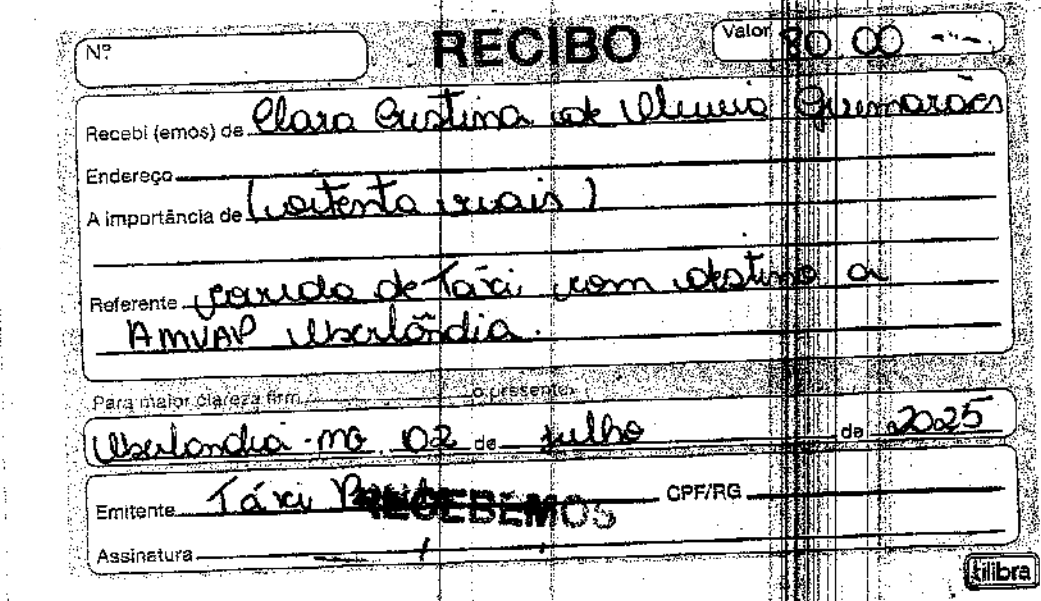 Nº RECIBO Valor 80,00
Recebi (emos) de Clara Cristina de Oliveira Guimarães
Endereço
A importância de (oitenta reais)
Referente corrida de Táxi com destino a
AMVAP Uberlândia.
Para maior clareza firm o presente.
Uberlandia - MG, 02 de julho de 2025
Emitente Táxi RECEBEMOS CPF/RG
Assinatura
tilibra